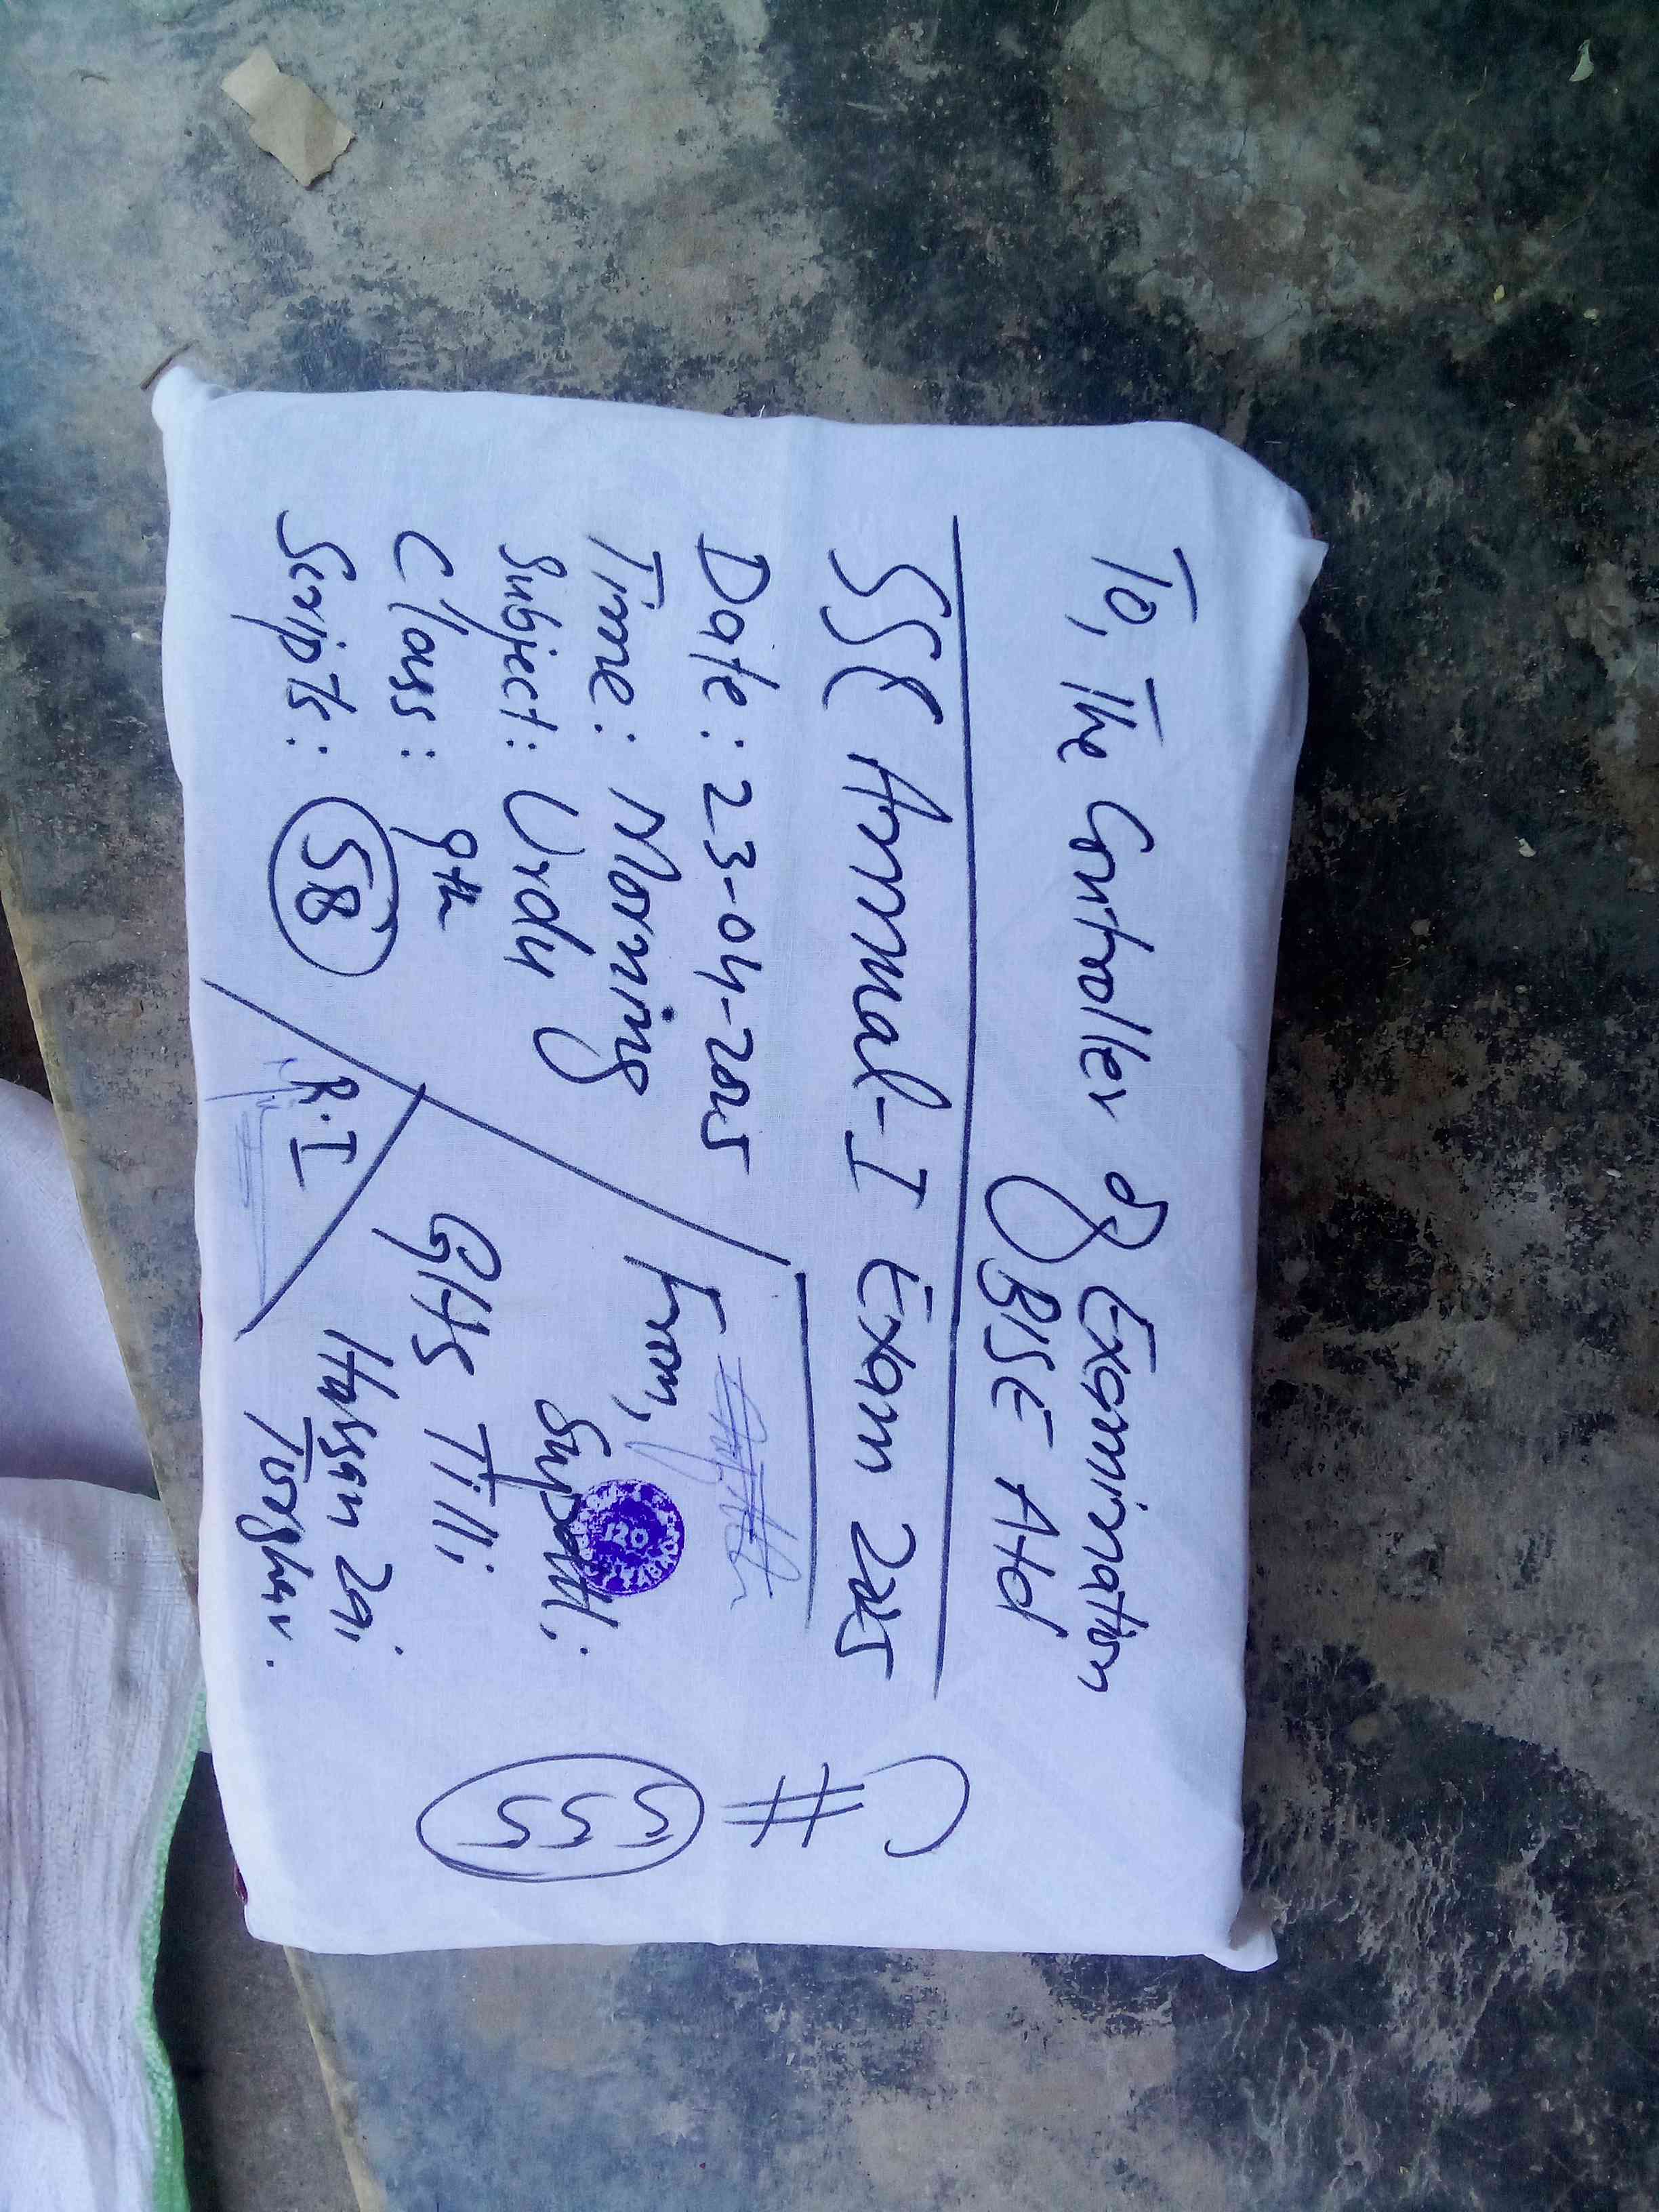 To, The Controller of Examination
BISE Atd
SSC Annual-I Exam 2025
C
#
555
Date: 23-04-2025
Time: Morning
Subject: Urdu
Class: 9th
Scripts: 58
R.I
From,
Supdtt:
120
GHS Tilli
Hassan Zai
Torghar.